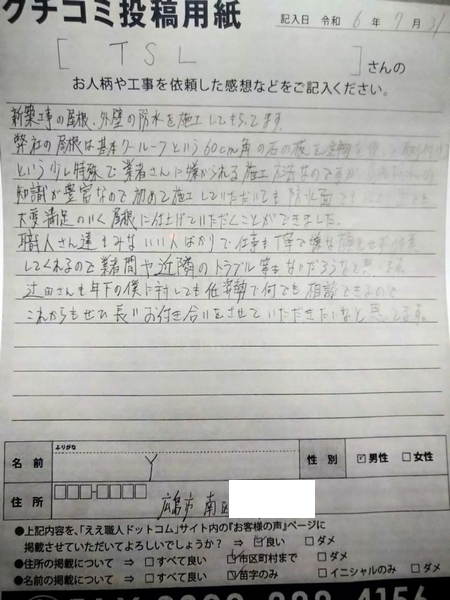 クチコミ投稿用紙
記入日 令和 6 年 7 月 31
[ TSL ]さんの
お人柄や工事を依頼した感想などをご記入ください。
新築工事の屋根、外壁の防水を施工してもらってます。
弊社の屋根は基本グルーフという60cm角の石の板を金物を使って取り付け
という少し特殊で業者さんに嫌がられる施工方法なのですが
知識が豊富なので初めて施工していただいても防水面でも
大変満足のいく屋根に仕上げていただくことができました。
職人さん達もみないい人ばかりで仕事も丁寧で嫌な顔もせず作業
してくれるので業者間や近隣のトラブル等もないだろうなと思います。
辻田さんも年下の僕に対しても低姿勢で何でも相談できるので
これからもぜひ長いお付き合いをさせていただきたいなと思ってます。
ふりがな
名前 Y 性別 ☑男性 □女性
住所 広島市 南区
●上記内容を、「ええ職人ドットコム」サイト内の『お客様の声』ページに
掲載させていただいてよろしいでしょうか? ⇒ ☑良い □ダメ
●住所の掲載について ⇒ □すべて良い ☑市区町村まで □ダメ
●名前の掲載について ⇒ □すべて良い ☑苗字のみ □イニシャルのみ □ダメ